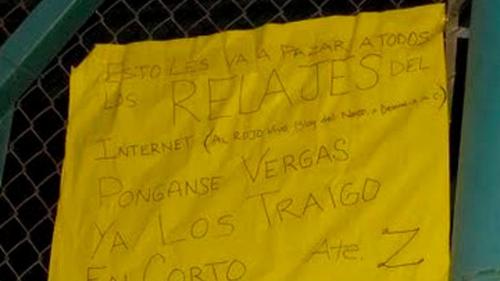 ESTO LES VA A PAZAR A TODOS
LOS RELAJES DEL
INTERNET (AL ROJO VIVO, Blog del Narco, o
PONGANSE VERGAS
YA LOS TRAIGO
EN CORTO Ate. Z